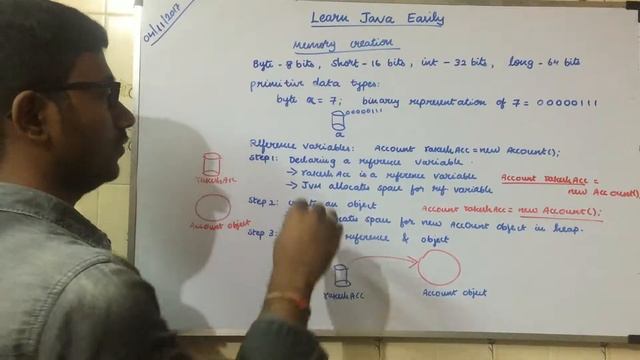 04/11/2017
Learn Java Easily
Memory creation
Byte - 8 bits, short - 16 bits, int - 32 bits, long - 64 bits
primitive data types:
byte a = 7; binary representation of 7 = 00000111
00000111
a
Reference variables: Account rakeshAcc = new Account();
Step1: Declaring a reference variable
→ rakeshAcc is a reference variable
→ JVM allocates space for ref variable
Account rakeshAcc =
new Account();
rakeshAcc
Step 2: an object
Account rakeshAcc = new Account();
space for new Account object in heap.
Account object
Step 3: reference & object
rakeshAcc
Account object